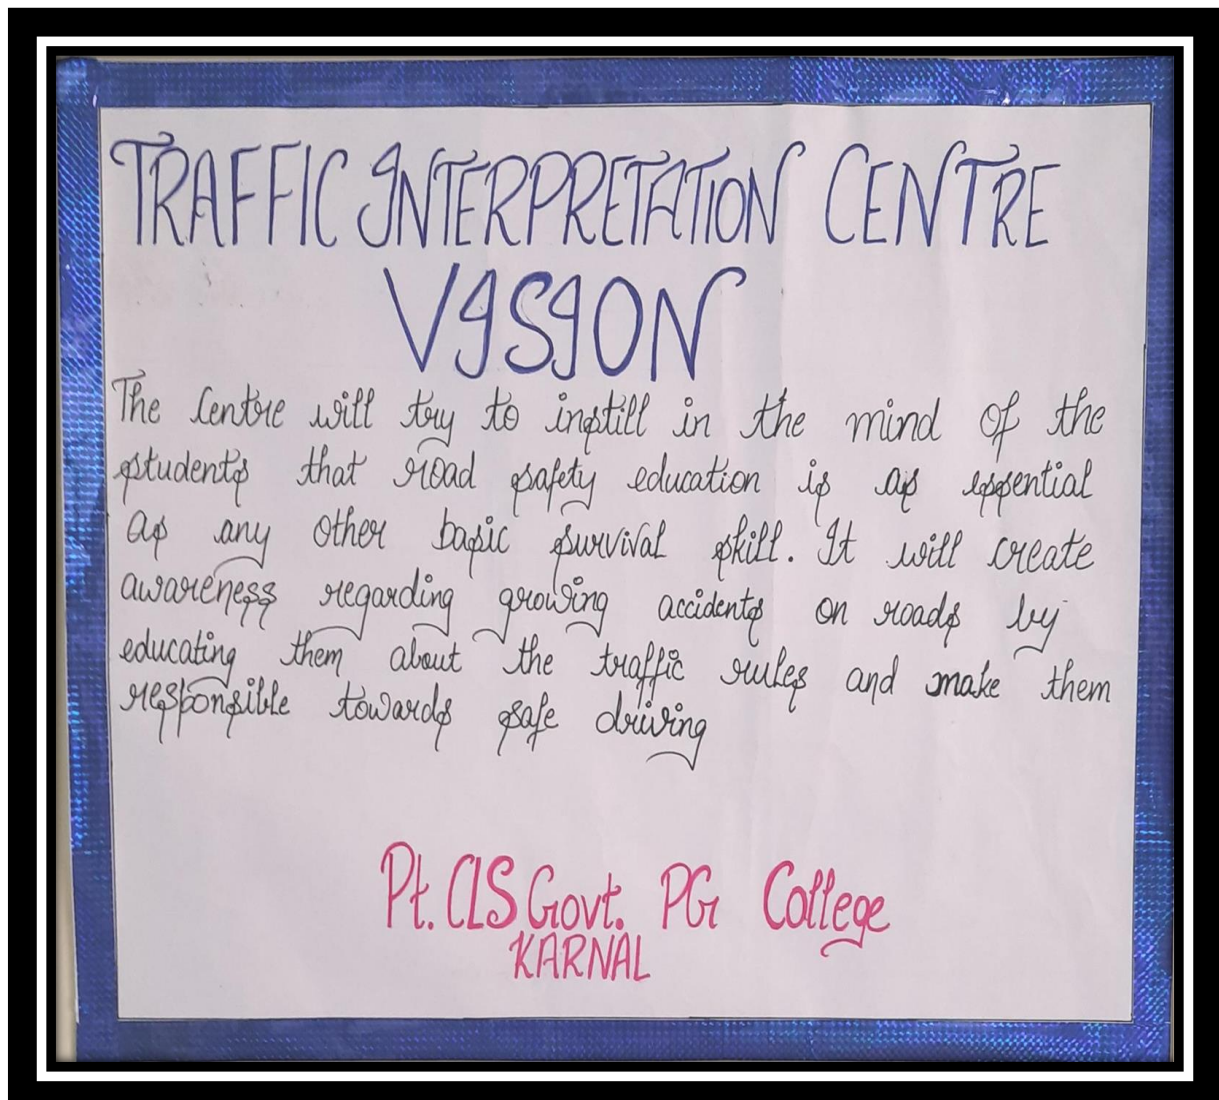 TRAFFIC INTERPRETATION CENTRE
VISION
The Centre will try to instill in the mind of the
students that road safety education is as essential
as any other basic survival skill. It will create
awareness regarding growing accidents on roads by
educating them about the traffic rules and make them
responsible towards safe driving
Pt. CLS Govt. PG College
KARNAL